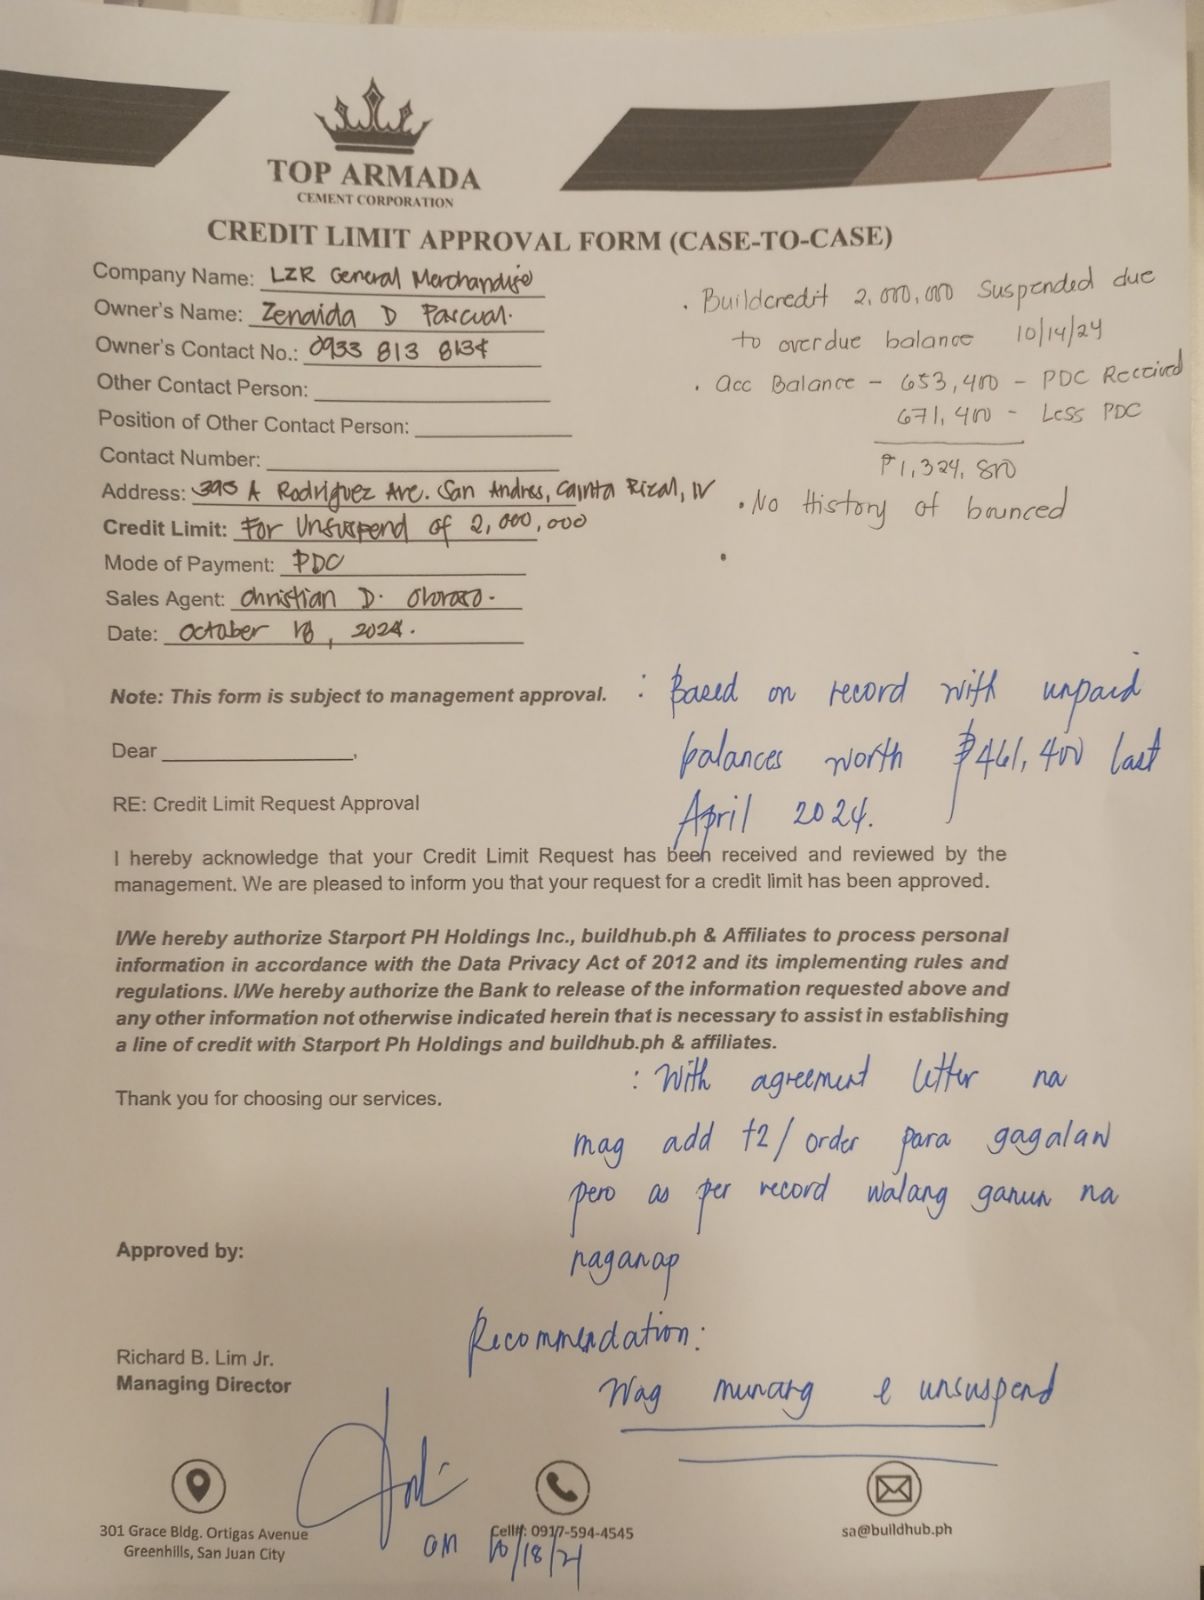 TOP ARMADA
CEMENT CORPORATION
CREDIT LIMIT APPROVAL FORM (CASE-TO-CASE)
Company Name: LZR General Merchandise
Owner's Name: Zenaida D Pascual.
Owner's Contact No.: 0933 813 8134
Other Contact Person:
Position of Other Contact Person:
Contact Number:
Address: 395 A Rodriguez Ave. San Andres, Cainta Rizal, IV
Credit Limit: For Unsuspend of 2,000,000
Mode of Payment: PDC
Sales Agent: Christian D.
Date: October 18, 2024.
. Buildcredit 2,000,000 Suspended due
to overdue balance 10/14/24
. Acc Balance - 653,400 - PDC Received
671,400 - Less PDC
₱1,324,800
. No History of bounced
.
Note: This form is subject to management approval.
: Based on record with unpaid
balances worth ₱461,400 last
April 2024.
Dear ,
RE: Credit Limit Request Approval
I hereby acknowledge that your Credit Limit Request has been received and reviewed by the
management. We are pleased to inform you that your request for a credit limit has been approved.
I/We hereby authorize Starport PH Holdings Inc., buildhub.ph & Affiliates to process personal
information in accordance with the Data Privacy Act of 2012 and its implementing rules and
regulations. I/We hereby authorize the Bank to release of the information requested above and
any other information not otherwise indicated herein that is necessary to assist in establishing
a line of credit with Starport Ph Holdings and buildhub.ph & affiliates.
Thank you for choosing our services.
: With agreement letter na
mag add +2/order para gagalaw
pero as per record walang ganun na
naganap
Approved by:
Recommendation:
Wag munang e unsuspend
Richard B. Lim Jr.
Managing Director
301 Grace Bldg. Ortigas Avenue
Greenhills, San Juan City
Cell#: 0917-594-4545
sa@buildhub.ph
10/18/24